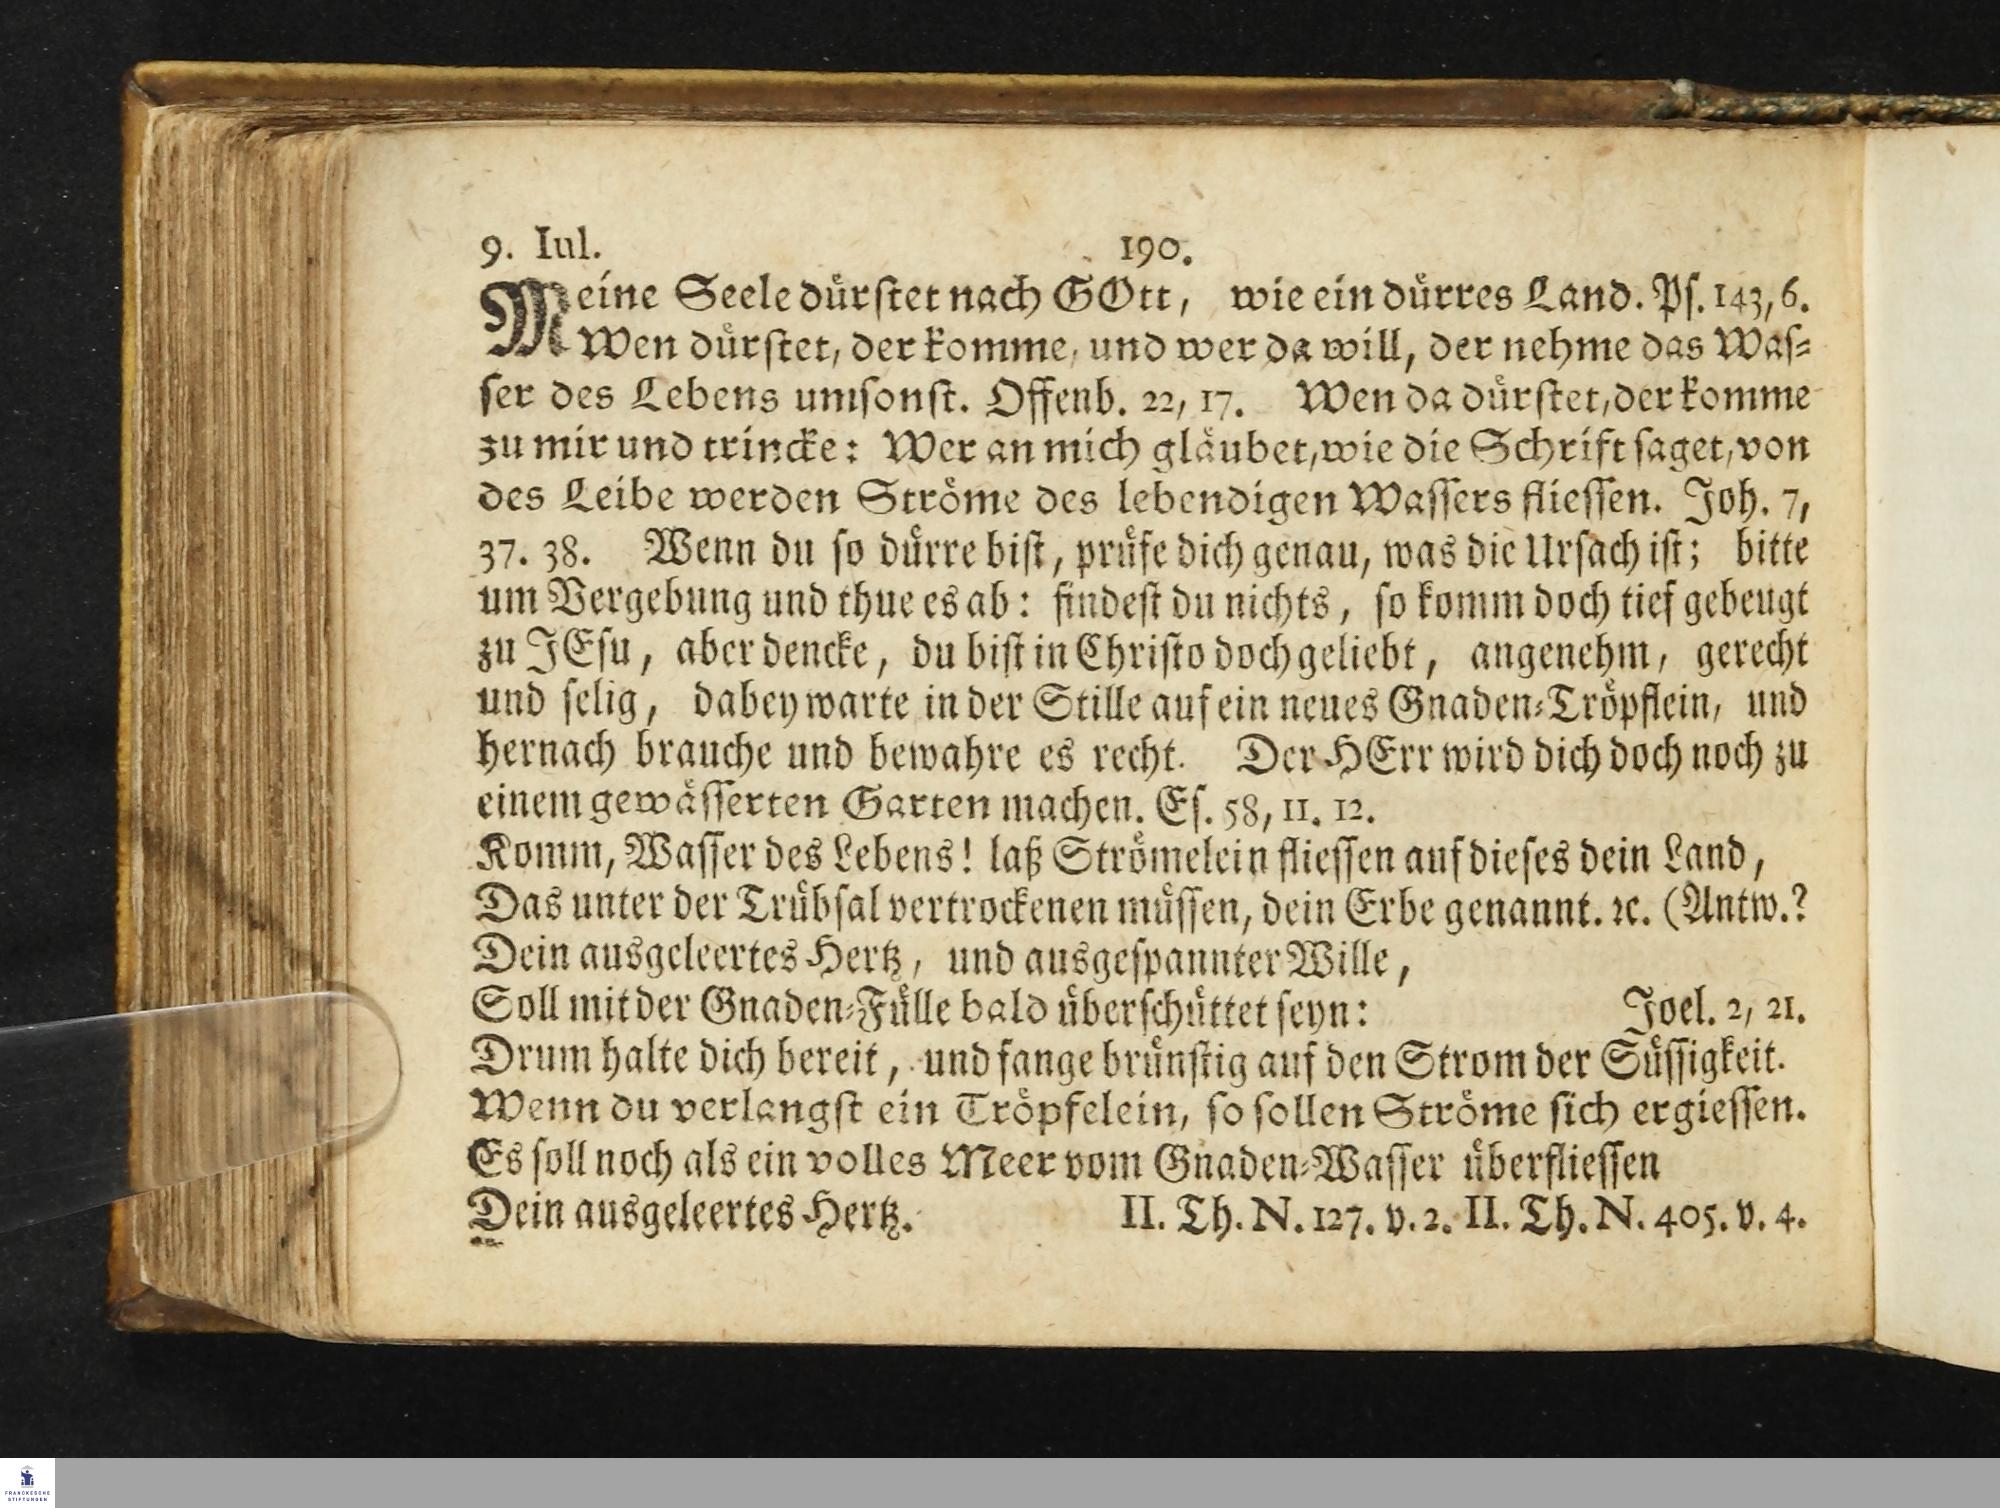 9. Iul. 190.
Meine Seele dürſtet nach GOtt, wie ein dürres Land. Pſ. 143, 6.
Wen dürſtet, der komme, und wer da will, der nehme das Waſ-
ſer des Lebens umſonſt. Offenb. 22, 17. Wen da dürſtet, der komme
zu mir und trincke: Wer an mich gläubet, wie die Schrift ſaget, von
des Leibe werden Ströme des lebendigen Waſſers flieſſen. Joh. 7,
37. 38. Wenn du ſo dürre biſt, prüfe dich genau, was die Urſach iſt; bitte
um Vergebung und thue es ab: findeſt du nichts, ſo komm doch tief gebeugt
zu JEſu, aber dencke, du biſt in Chriſto doch geliebt, angenehm, gerecht
und ſelig, dabey warte in der Stille auf ein neues Gnaden-Tröpflein, und
hernach brauche und bewahre es recht. Der HErr wird dich doch noch zu
einem gewäſſerten Garten machen. Eſ. 58, 11. 12.
Komm, Waſſer des Lebens! laß Strömelein flieſſen auf dieſes dein Land,
Das unter der Trübſal vertrockenen müſſen, dein Erbe genannt. ꝛc. (Antw.?
Dein ausgeleertes Hertz, und ausgeſpannter Wille,
Soll mit der Gnaden-Fülle bald überſchüttet ſeyn: Joel. 2, 21.
Drum halte dich bereit, und fange brünſtig auf den Strom der Süſſigkeit.
Wenn du verlangſt ein Tröpfelein, ſo ſollen Ströme ſich ergieſſen.
Es ſoll noch als ein volles Meer vom Gnaden-Waſſer überflieſſen
Dein ausgeleertes Hertz. II. Th. N. 127. v. 2. II. Th. N. 405. v. 4.
FRANCKESCHE
STIFTUNGEN